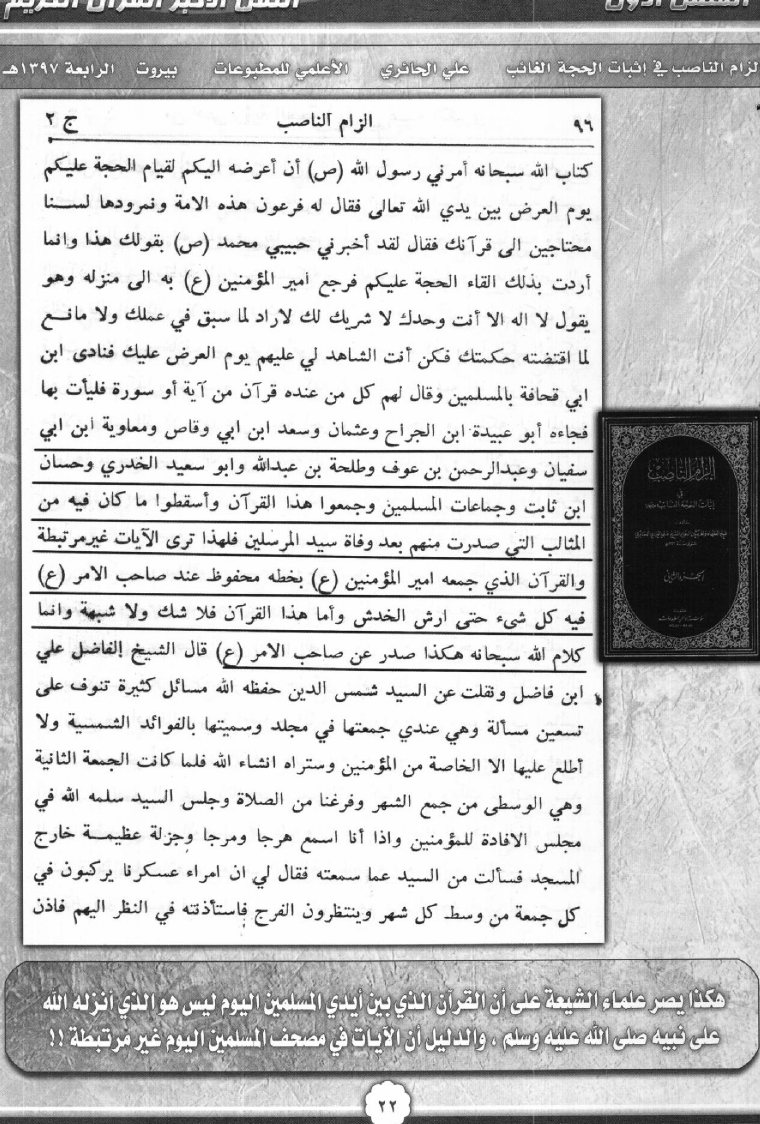 الزام الناصب في اثبات الحجة الغائب علي الحائري الأعلمي للمطبوعات بيروت الرابعة ١٣٩٧هـ
٩٦ الزام الناصب ج ٢
كتاب الله سبحانه أمرني رسول الله (ص) أن أعرضه اليكم لقيام الحجة عليكم
يوم العرض بين يدي الله تعالى فقال له فرعون هذه الامة ونمرودها لسنا
محتاجين الى قرآنك فقال لقد أخبرني حبيبي محمد (ص) بقولك هذا وانما
أردت بذلك القاء الحجة عليكم فرجع امير المؤمنين (ع) به الى منزله وهو
يقول لا اله الا أنت وحدك لا شريك لك لاراد لما سبق في عملك ولا مانع
لما اقتضته حكمتك فكن أنت الشاهد لي عليهم يوم العرض عليك فنادى ابن
ابي قحافة بالمسلمين وقال لهم كل من عنده قرآن من آية أو سورة فليأت بها
فجاءه أبو عبيدة ابن الجراح وعثمان وسعد ابن ابي وقاص ومعاوية ابن ابي
سفيان وعبدالرحمن بن عوف وطلحة بن عبدالله وابو سعيد الخدري وحسان
ابن ثابت وجماعات المسلمين وجمعوا هذا القرآن وأسقطوا ما كان فيه من
المثالب التي صدرت منهم بعد وفاة سيد المرسلين فلهذا ترى الآيات غيرمرتبطة
والقرآن الذي جمعه امير المؤمنين (ع) بخطه محفوظ عند صاحب الامر (ع)
فيه كل شىء حتى ارش الخدش وأما هذا القرآن فلا شك ولا شبهة وانما
كلام الله سبحانه هكذا صدر عن صاحب الامر (ع) قال الشيخ الفاضل علي
ابن فاضل ونقلت عن السيد شمس الدين حفظه الله مسائل كثيرة تنوف على
تسعين مسألة وهي عندي جمعتها في مجلد وسميتها بالفوائد الشمسية ولا
أطلع عليها الا الخاصة من المؤمنين وستراه انشاء الله فلما كانت الجمعة الثانية
وهي الوسطى من جمع الشهر وفرغنا من الصلاة وجلس السيد سلمه الله في
مجلس الافادة للمؤمنين واذا أنا اسمع هرجا ومرجا وجزلة عظيمة خارج
المسجد فسألت من السيد عما سمعته فقال لي ان امراء عسكرنا يركبون في
كل جمعة من وسط كل شهر وينتظرون الفرج فاستأذنته في النظر اليهم فاذن
إلزام الناصب
في
هكذا يصر علماء الشيعة على أن القرآن الذي بين أيدي المسلمين اليوم ليس هو الذي انزله الله
على نبيه صلى الله عليه وسلم ، والدليل أن الآيات في مصحف المسلمين اليوم غير مرتبطة !!
٢٢